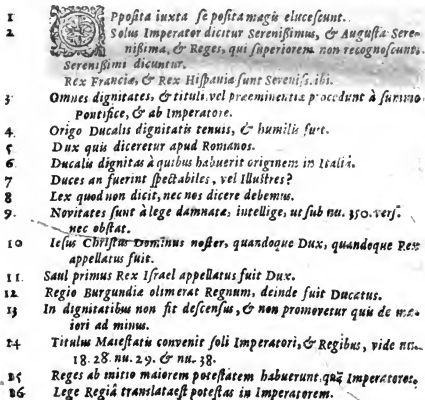 1 OPposita iuxta se posita magis elucescunt.
2 Solus Imperator dicitur Serenißimus, & Augusta Sere-
nißima, & Reges, qui superiorem non recognoscunt,
Serenißimi dicuntur.
Rex Franciæ, & Rex Hispaniæ sunt Sereniss. ibi.
3 Omnes dignitates, & tituli vel præeminentiæ procedunt à summo
Pontifice, & ab Imperatore.
4. Origo Ducalis dignitatis tenuis, & humilis fuit.
5 Dux quis diceretur apud Romanos.
6. Ducalis dignitas à quibus habuerit originem in Italia.
7 Duces an fuerint spectabiles, vel Illustres?
8 Lex quod non dicit, nec nos dicere debemus.
9. Novitates sunt à lege damnatæ, intellige, ut sub nu. 350. vers.
nec obstat.
10 Iesus Christus Dominus noster, quandoque Dux, quandoque Rex
appellatus fuit.
11. Saul primus Rex Israel appellatus fuit Dux.
12 Regio Burgundiæ olim erat Regnum, deinde fuit Ducatus.
13 In dignitatibus non fit descensus, & non promovetur quis de ma-
iori ad minus.
14 Titulus Maiestatis convenit soli Imperatori, & Regibus, vide nu.
18. 28. nu. 29. & nu. 38.
15 Reges ab initio maiorem potestatem habuerunt, quã Imperatores.
16 Lege Regiâ translata est potestas in Imperatorem.